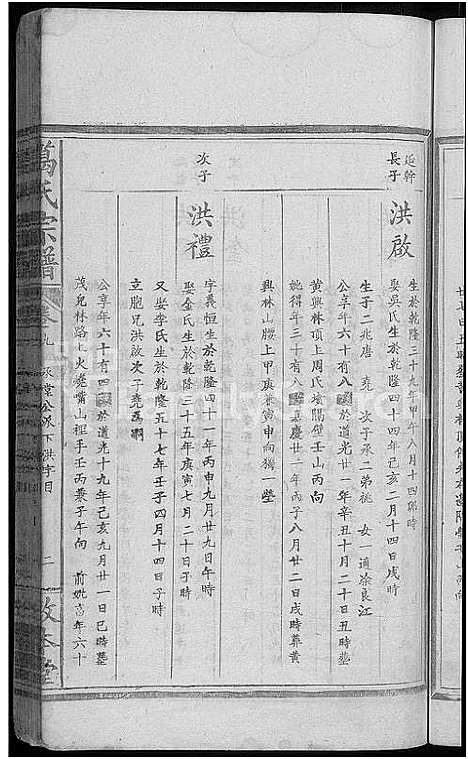 延幹
長子
洪啟
生於乾隆三十九年甲午八月十四 時
娶吳氏生於乾隆四十四年己亥二月十四日戌時
生子二兆唐 堯 次子承二弟祧 女一適涂良江
公享年六十有八 於道光廿一年辛丑十月二十日丑時塟
黃興林項上周氏 隔壁壬山丙向
妣得年三十有八 嘉慶廿一年丙子八月廿二日戌時葬黃
興林山腰上甲庚兼寅申向獨一塋
次子
洪禮
字義恒生於乾隆四十一年丙申九月廿九日午時
娶金氏生於乾隆三十五年庚寅七月二十日子時
又娶李氏生於乾隆五十七年壬子四月十四日子時
立胞兄洪啟次子堯為嗣
公享年六十有四 於道光十九年己亥九月廿一日巳時塟
茂兒林路上火 嘴山裡手壬丙兼子午向 前妣 年六十
萬氏宗譜
卷九 承堂公派下洪字目
二
敦本堂